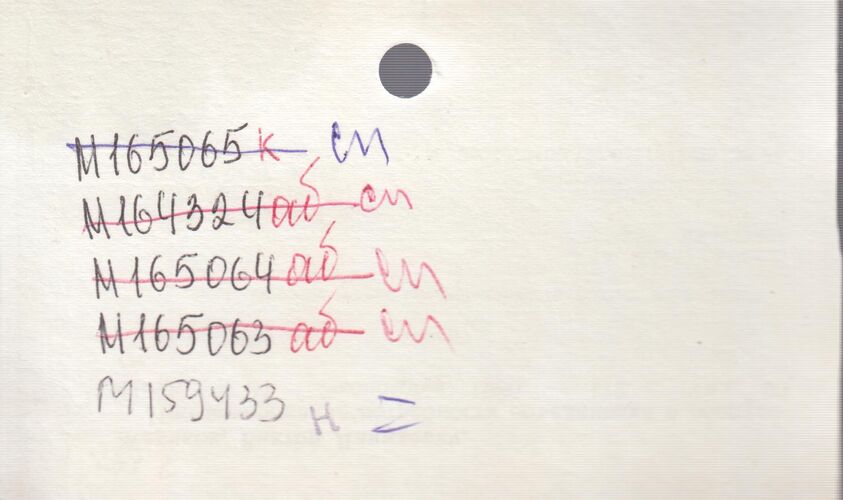 М165065 к сп
М164324 аб сп
М165064 аб сп
М165063 аб сп
М159433 н =